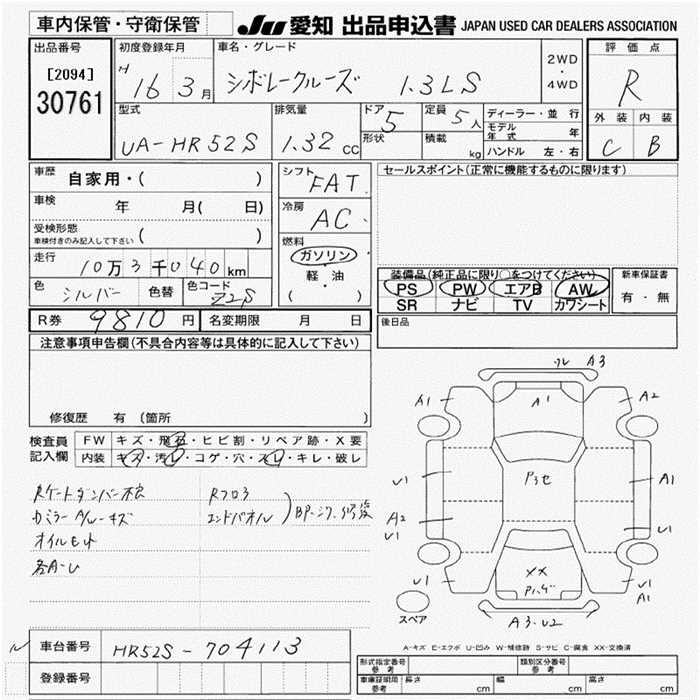 車内保管・守衛保管
JU 愛知 出品申込書 JAPAN USED CAR DEALERS ASSOCIATION
出品番号
[2094]
30761
初度登録年月
H 16 3月
車名・グレード
シボレークルーズ 1.3LS
2WD
・
4WD
評価点
R
外装 内装
C B
型式
UA-HR52S
排気量
1.32 cc
ドア
5
形状
定員
5人
積載
kg
ディーラー・並行
モデル年式 年
ハンドル 左・右
車歴 自家用・( )
車検 年 月( 日)
受検形態
車検付きのみ記入して下さい ( )
走行 10万3千040 km
色 シルバー 色替 色コード Z2S
シフト FAT
冷房 AC
燃料
ガソリン
・
軽・油
( )
セールスポイント(正常に機能するものに限ります)
装備品(純正品に限り○をつけてください)
PS PW エアB AW
SR ナビ TV カワシート
新車保証書
有・無
R券 9810円 名変期限 月 日
後日品
注意事項申告欄(不具合内容等は具体的に記入して下さい)
修復歴 有(箇所
検査員記入欄
FW キズ・飛石・ヒビ割・リペア跡・X要
内装 キズ・汚レ・コゲ・穴・スレ・キレ・破レ
Rゲートダンパー不良
カミラーA/U-キズ
オイルモレ
各A-U
Rフロ3
エンドパネル
BP-ジワ・修復
ワレ A3
A1
A1
A2
U1
A2
U1
U1
A1
U1
U1
A1
XX
Pハゲ
A3・U2
スペア
A-キズ E-エクボ U-凹み W-補修跡 S-サビ C-腐食 XX-交換済
車台番号 HR52S-704113
登録番号
型式指定番号 参考
類別区分番号 参考
車庫証明用 参考 長さ cm 幅 cm 高さ cm